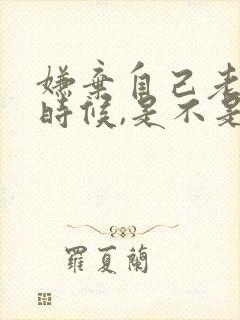 嫌棄自己老
時候,是不是
羅夏蘭